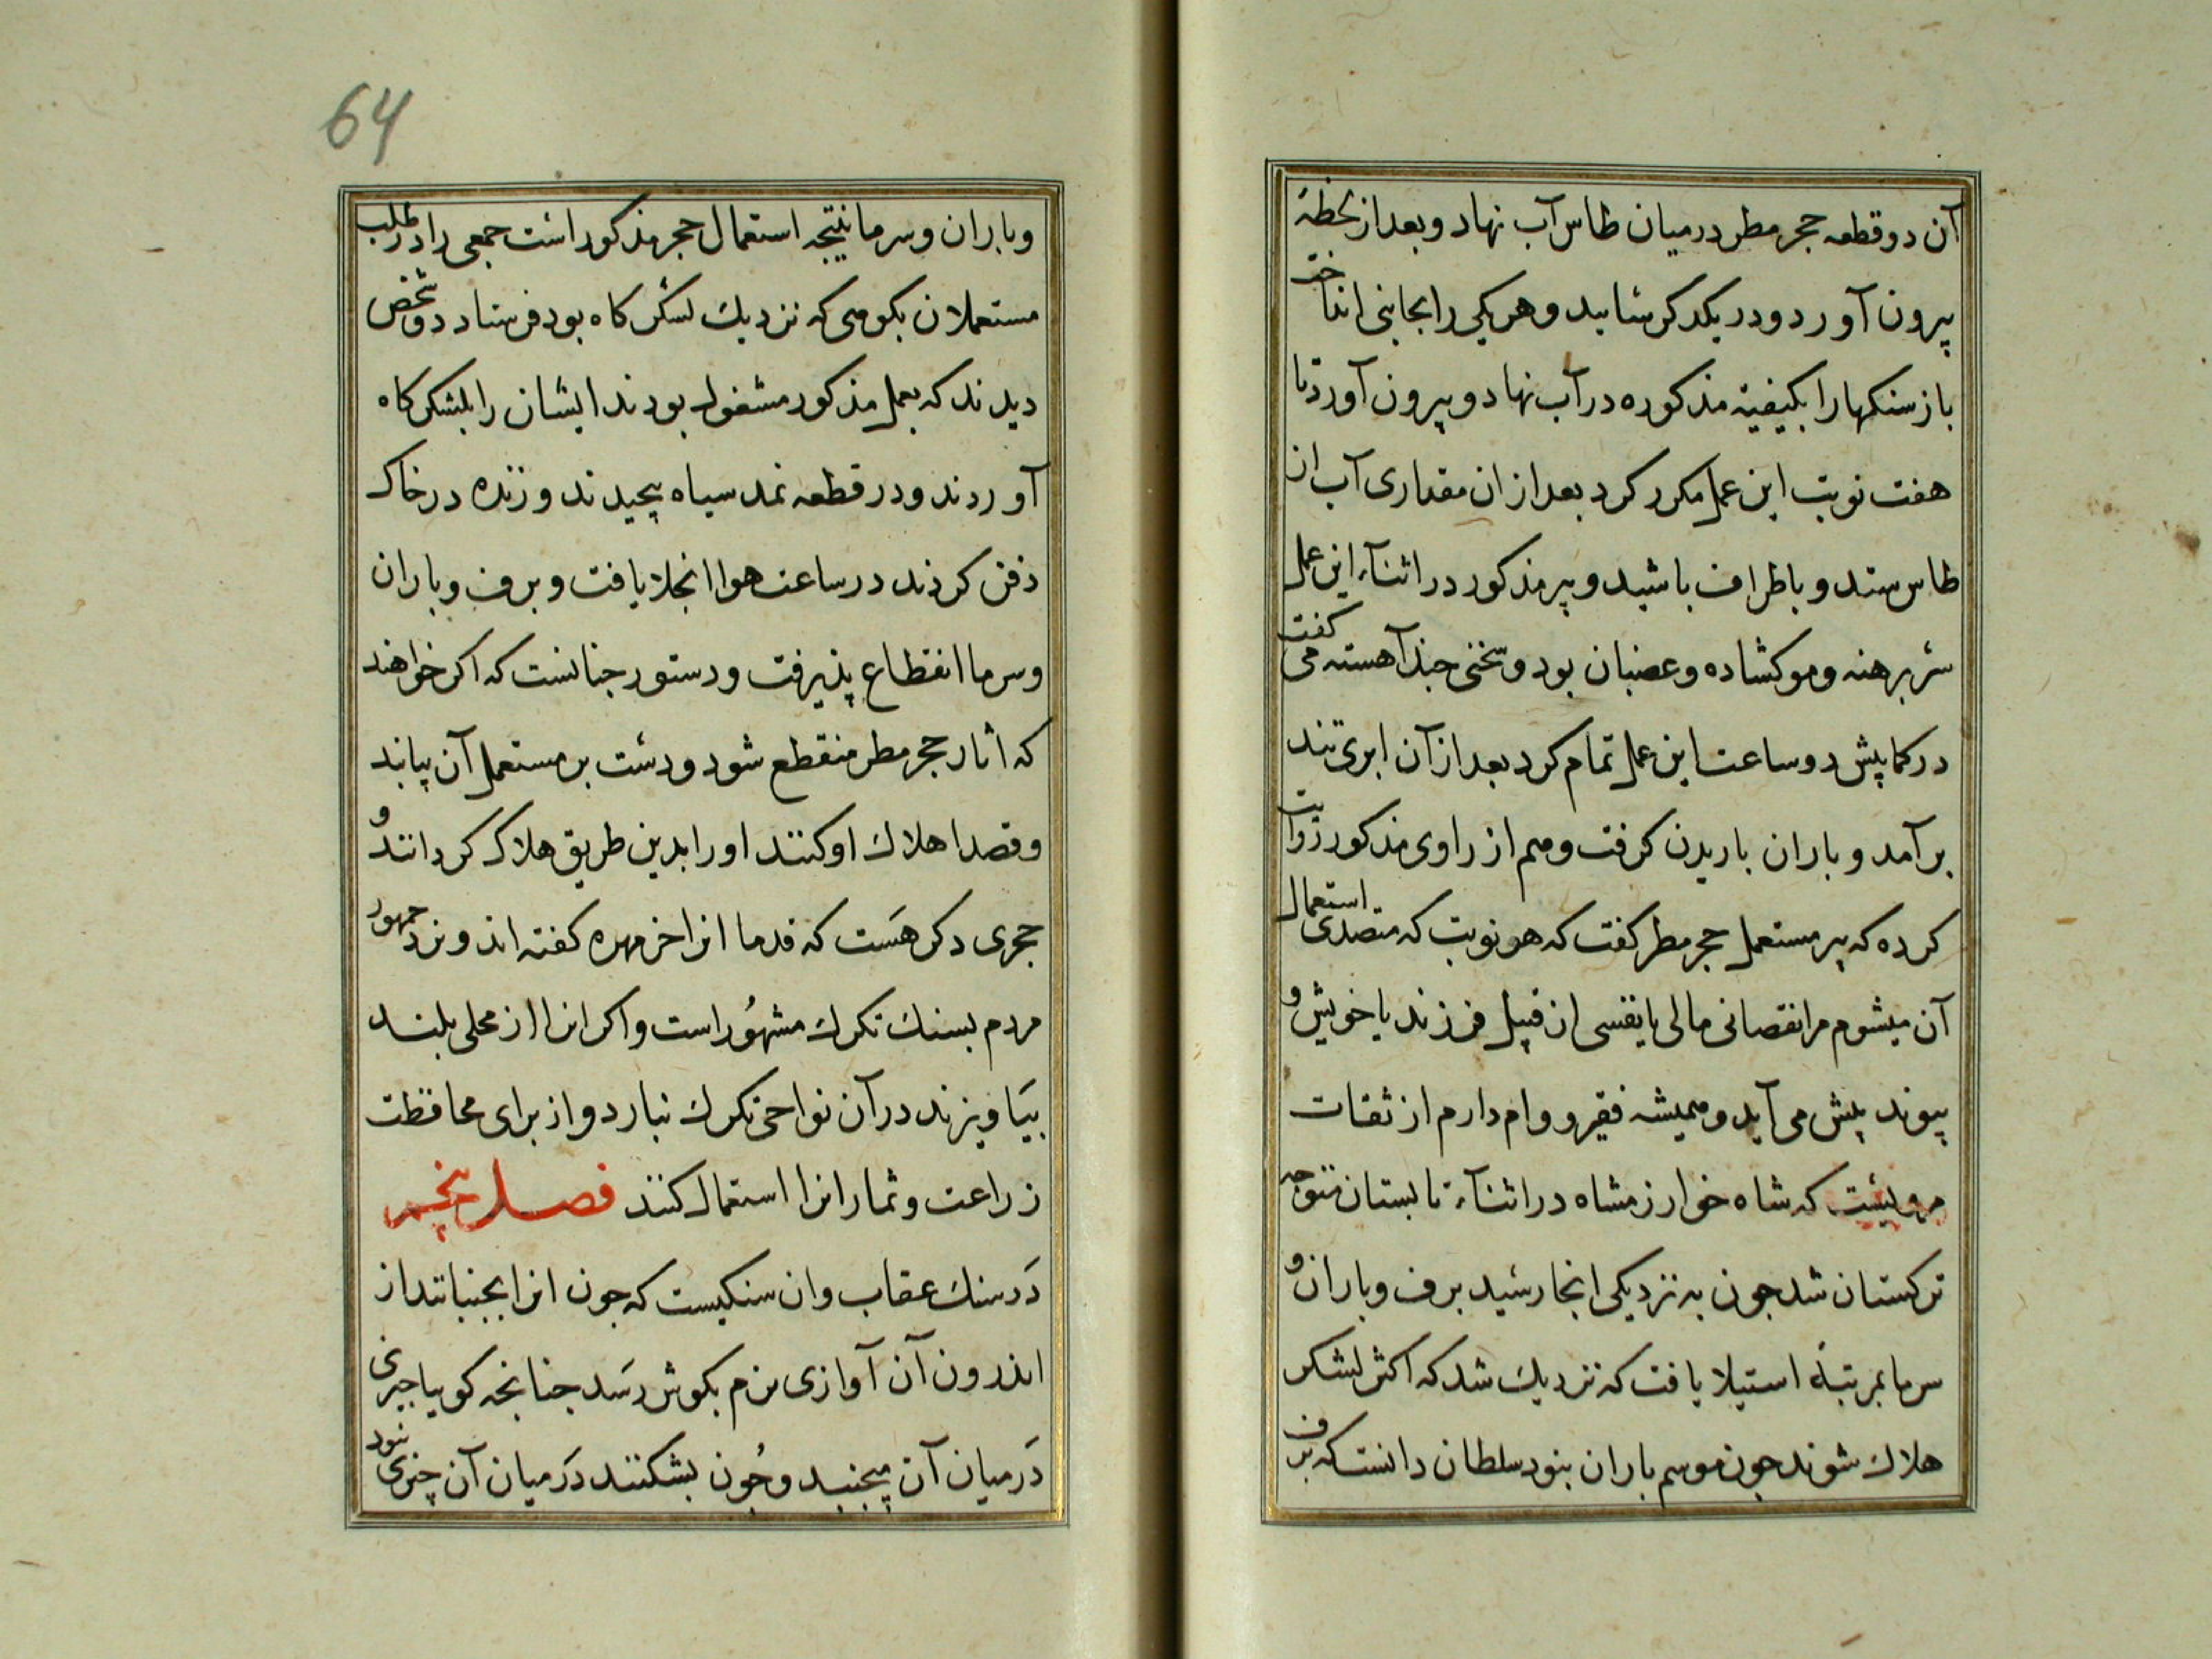 آن دو قطعه حجر مطر در میان طاس آب نهاد و بعد از لحظهٔ
بیرون آورد و در یکدکر سائید و هریکی را بجانبی انداخت
باز سنکها را بکیفیة مذکوره در آب نهاد و بیرون آورد تا
هفت نوبت این عمل مکرر کرد بعد از ان مقداری آب ان
طاس ستد و باطراف باشید و پیر مذکور در اثنآء این عمل
سر برهنه و مو کشاده و غضبان بود و سخنی جند آهسته می کفت
در کمابیش دو ساعت این عمل تمام کرد بعد از آن ابری تند
برآمد و باران باریدن کرفت و هم از راوی مذکور روایت
کرده که پیر مستعمل حجر مطر کفت که هر نوبت که متصدی استعمال
آن میشوم مرا نقصانی مالی یا نفسی از قبیل فرزند یا خویش و
پیوند پیش می آید و همیشه فقیر و وام دارم از ثقات
مرویست که شاه خوارزمشاه در اثنآء تابستان متوجه
ترکستان شد جون به نزدیکی انجا رسید برف و باران و
سرما بمرتبهٔ استیلا یافت که نزدیك شد که اکثر لشکر
هلاك شوند جون موسم باران نبود سلطان دانست که برف
64
و باران و سرما نتیجه استعمال حجر مذکور است جمعی را در طلب
مستعملان بکوهی که نزدیك لشکر کاه بود فرستاد دو شخص
دیدند که بعمل مذکور مشغول بودند ایشان را بلشکر کاه
آوردند و در قطعه نمد سیاه پیچیدند و زنده در خاک
دفن کردند در ساعت هوا انجلا یافت و برف و باران
و سرما انقطاع پذیرفت و دستور جنانست که اکر خواهند
که اثار حجر مطر منقطع شود و دست بر مستعمل آن یابند
و قصد اهلاك او کنند او را بدین طریق هلاک کردانند و
حجری دکر هست که قدما انرا خرمهره کفته اند و نزد جمهور
مردم بسنك تکرك مشهور است و اکر انرا از محلی بلند
بیاویزند در آن نواحی تکرك نبارد و از برای محافظت
زراعت و ثمار انرا استعمال کنند فصل پنجم
در سنك عقاب و ان سنکیست که جون انرا بجنبانند از
اندرون آن آوازی نرم بکوش رسد جنانجه کویا چیزی
در میان آن میجنبد و جون بشکنند در میان آن چیزی نبود